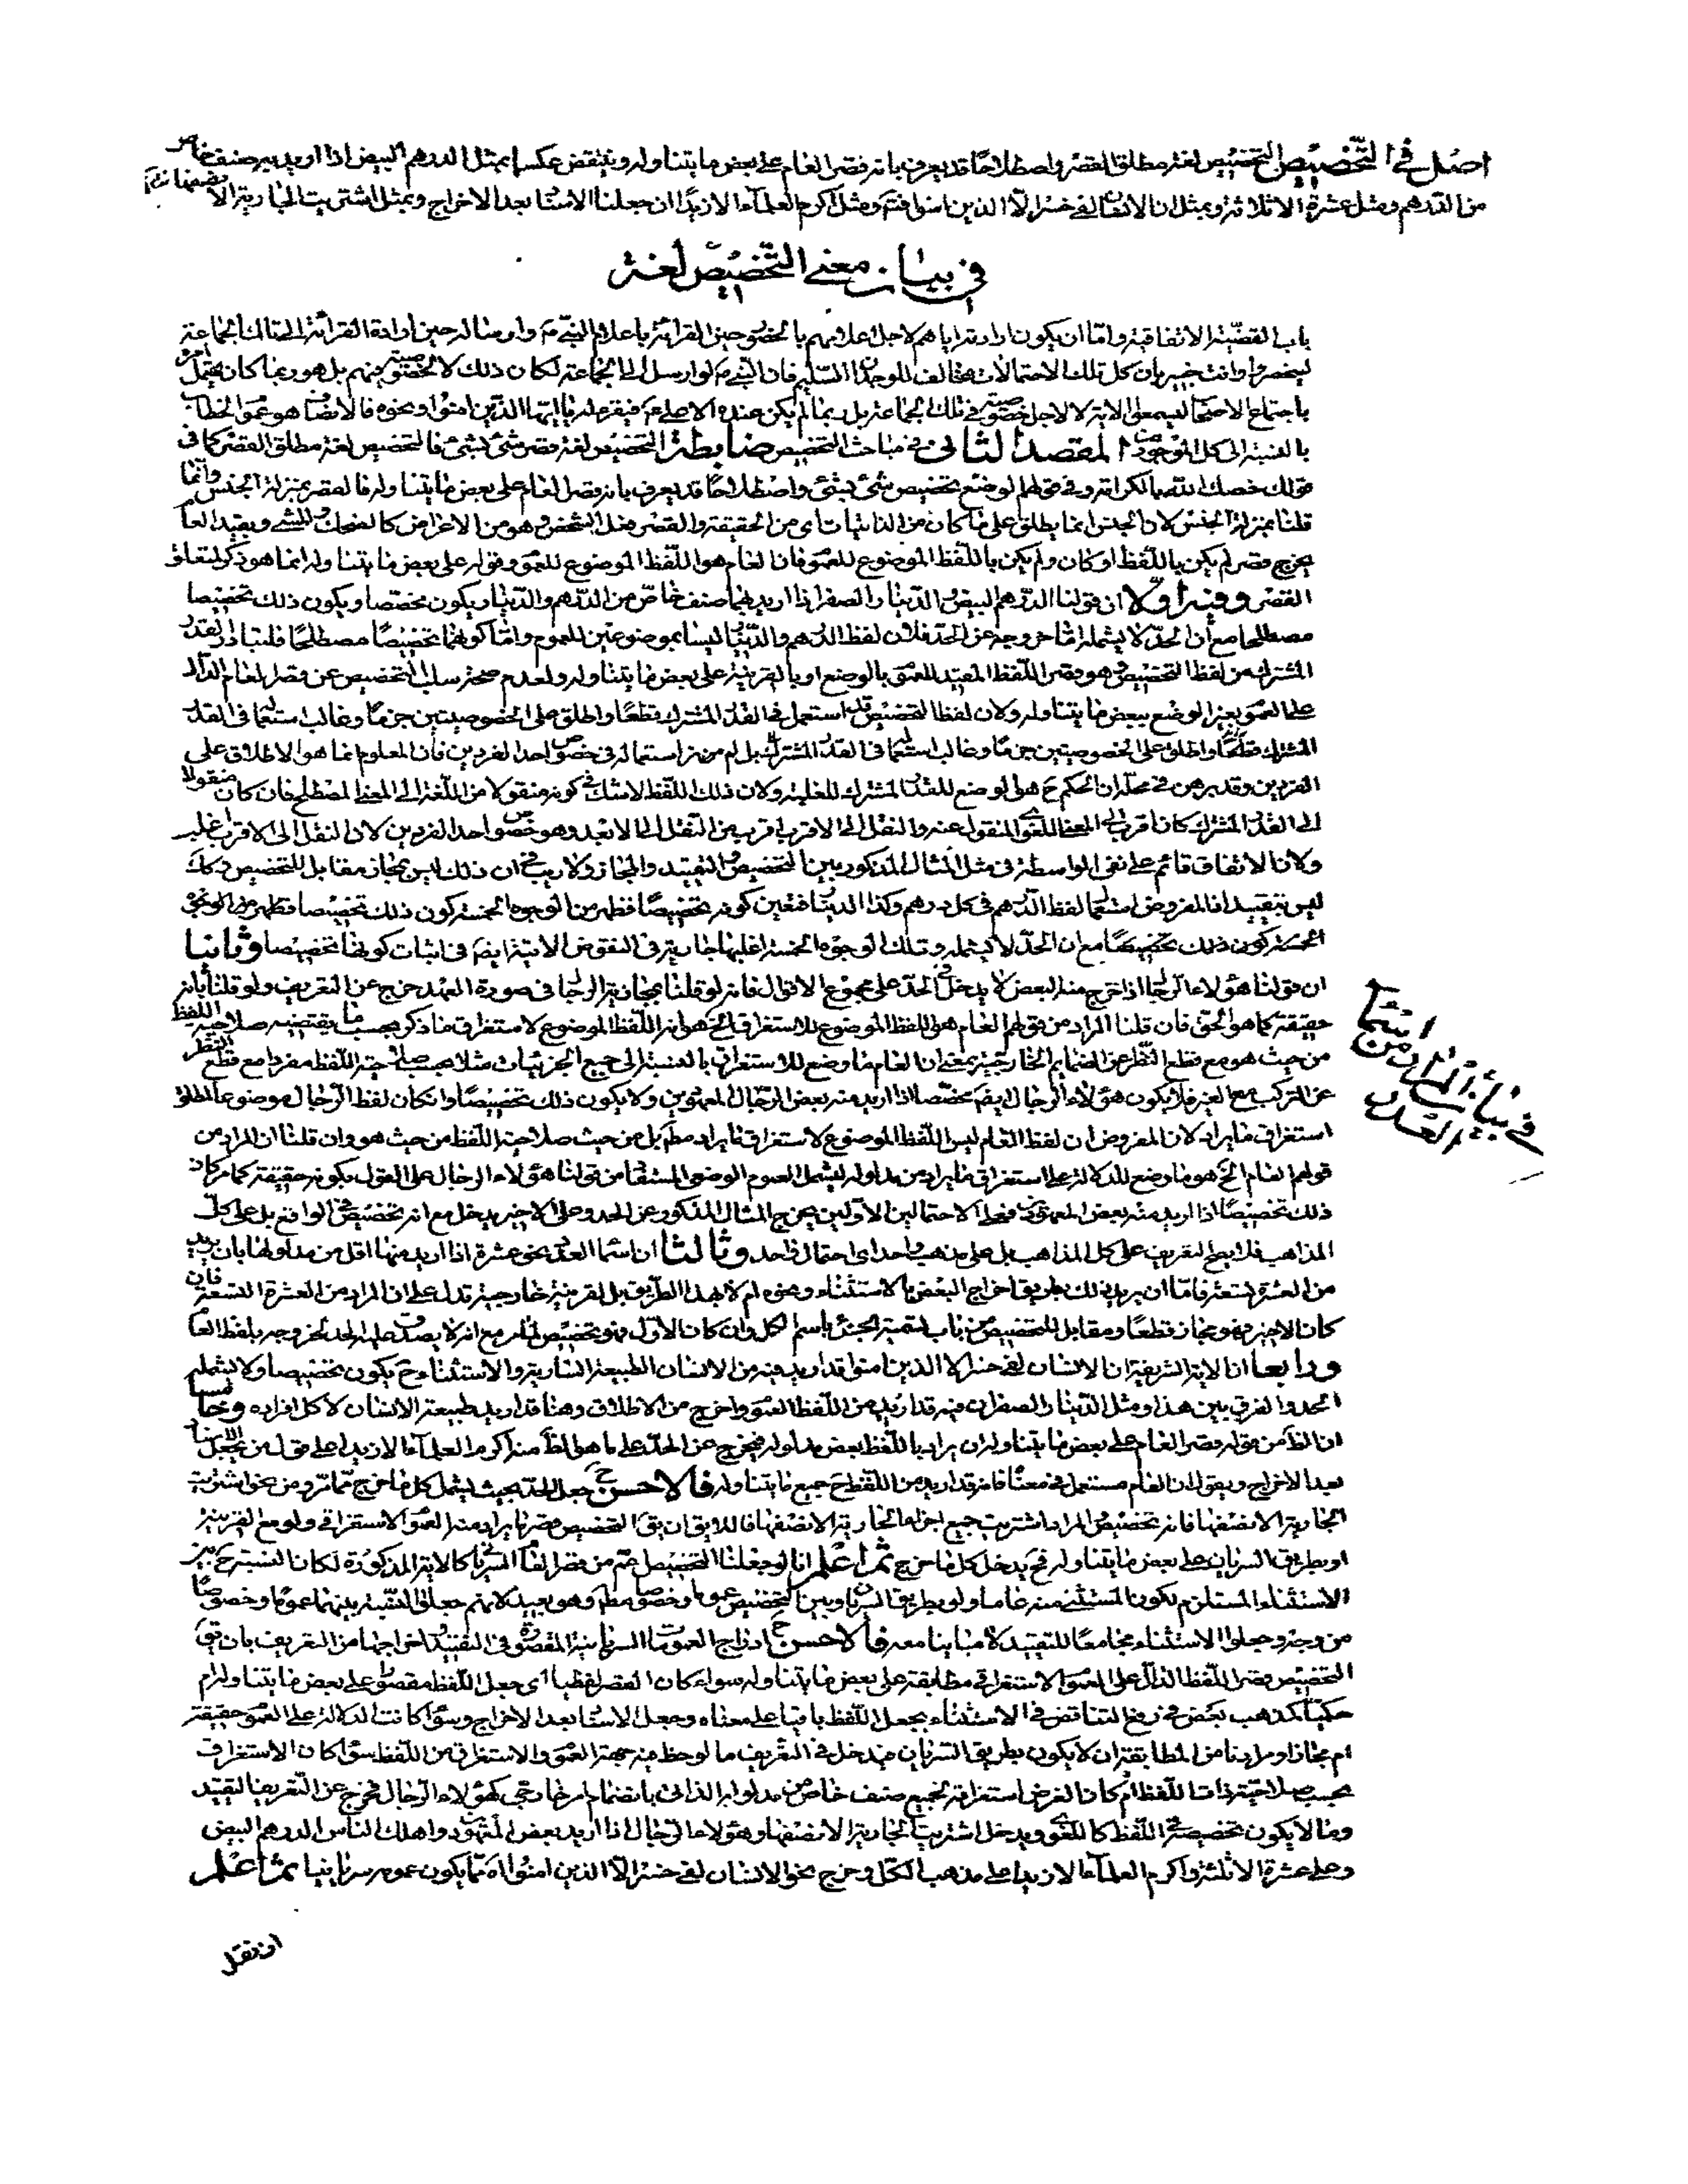 اصل في التخصيص التخصيص لغة مطلق القصر واصطلاحا قد يعرف بانه قصر العام على بعض ما يتناوله وينتقض عكسا بمثل الدرهم البيض اذا اريد به صنف خاص
من الدرهم ومثل عشرة الا ثلاثة وبمثل ان الانسان لفي خسر الا الذين امنوا ومثل اكرم العلماء الا زيدا ان جعلنا الاستثنا بعد الاخراج وبمثل اشتريت الجارية الا نصفها
في بيان معنى التخصيص لغة
باب القضية الاتفاقية واما ان يكون ارادته اياهم لاجل اعلامهم بالخصوص حين القرائة باعلام النبي ص وارساله حين ارادة القرائة الى تلك الجماعة
ليحضروا وانت خبير بان كل تلك الاحتمالات مخالف للوجدان السليم فان النبي ص لو ارسل الى الجماعة لكان ذلك لا لخصوصية فيهم بل هو ربما كان يحتمل
باجتماع الاصحاب ليسمعوا الاية لا لاجل خصوصية في تلك الجماعة بل ربما لم يكن عنده الا علي ع فيقرء يا ايها الذين امنوا ونحوه فالانصاف هو عموم الخطاب
بالنسبة الى كل الموجودين المقصد الثاني في مباحث التخصيص ضابطة التخصيص لغة قصر شئ بشئ فالتخصيص لغة مطلق القصر كما في
قولك خصك الله بالكرامة وفي قولهم الوضع تخصيص شئ بشئ واصطلاحا قد يعرف بانه قصر العام على بعض ما يتناوله فالقصر بمنزلة الجنس وانما
قلنا بمنزلة الجنس لان الجنس انما يطلق على ما كان من الذاتيات اى من الحقيقة والقصر فعل الشخص وهو من الاعراض كالضحك والمشي وبقيد العام
يخرج قصر لم يكن باللفظ او كان ولم يكن باللفظ الموضوع للعموم فان العام هو اللفظ الموضوع للعموم وقوله على بعض ما يتناوله انما هو ذكر لمتعلق
القصر وفيه اولا ان قولنا الدرهم البيض والدينار الصفر اذا اريد بهما صنف خاص من الدرهم والدينار يكون مخصصا ويكون ذلك تخصيصا
مصطلحا مع ان الحد لا يشمله اما خروجه عن الحد فلان لفظ الدرهم والدينار ليسا بموضوعين للعموم واما كونهما تخصيصا مصطلحا فلتبادر القدر
المشترك من لفظ التخصيص وهو قصر اللفظ المفيد للعموم بالوضع او بالقرينة على بعض ما يتناوله ولعدم صحة سلب التخصيص عن قصر العام الدال
على العموم بغير الوضع ببعض ما يتناوله ولان لفظ التخصيص قد استعمل في القدر المشترك قطعا واطلق على الخصوصيتين جزما وغالب استعماله في القدر
المشترك قطعا واطلق على الخصوصيتين جزما وغالب استعماله في القدر المشترك بل لم نر استعماله في خصوص احد الفردين فان المعلوم انما هو الاطلاق على
الفردين وقد برهن في محله ان الحكم ح هو الوضع للقدر المشترك للغلبة ولان ذلك اللفظ لا شك في كونه منقولا من اللغة الى المعنى المصطلح فان كان منقولا
الى القدر المشترك كان اقرب الى المعنى اللغوي المنقول عنه والنقل الى الاقرب اقرب من النقل الى الابعد وهو خصوص احد الفردين لان النقل الى الاقرب اغلب
ولان الاتفاق قائم على نفي الواسطة في مثل المثال المذكور بين التخصيص والتقييد والمجاز ولا ريب في ان ذلك ليس بمجاز مقابل للتخصيص وكك
ليس بتقييد اذ المفروض استعمال لفظ الدرهم في كل درهم وكذا الدينار فتعين كونه تخصيصا فظهر من الوجوه الخمسة كون ذلك تخصيصا فظهر من الوجوه
الخمسة كون ذلك تخصيصا مع ان الحد لا يشمله وتلك الوجوه الخمسة اغلبها جارية في النقوض الاتية ايضا في اثبات كونها تخصيصا وثانيا
ان قولنا هؤلاء الرجال اذا خرج منه البعض لا يدخل في الحد على مجموع الاقوال فانه لو قلنا بمجازية الرجال في صورة العهد خرج عن التعريف ولو قلنا بانه
حقيقة كما هو الحق فان قلنا المراد من قولهم العام هو اللفظ الموضوع للاستغراق الخ هو انه اللفظ الموضوع لاستغراق ما ذكر بحسب ما يقتضيه صلاحية اللفظ
من حيث هو مع قطع النظر عن الضمايم الخارجية بمعنى ان العام ما وضع للاستغراق بالنسبة الى جميع الجزئيات مثلا بحسب صلاحية اللفظ مفردا مع قطع النظر
عن التركب مع الغير فلا يكون هؤلاء الرجال ايضا مخصصا اذا اريد منه بعض الرجال المعهودين ولا يكون ذلك تخصيصا وان كان لفظ الرجال موضوعا لمطلق
استغراق ما يراد لان المفروض ان لفظ العام ليس اللفظ الموضوع لاستغراق ما يراد مط بل من حيث صلاحية اللفظ من حيث هو وان قلنا ان المراد من
قولهم العام الخ هو ما وضع للدلالة على استغراق ما يراد من مدلوله ليشمل العموم الوضعي المستفاد من قولنا هؤلاء الرجال على القول بكونه حقيقة كما مر كان
ذلك تخصيصا اذا اريد منه بعض المعهودين فعلى الاحتمالين الاولين يخرج المثال المذكور عن الحد وعلى الاخير يدخل مع انه تخصيص في الواقع بل على كل
المذاهب فلا يصح التعريف على كل المذاهب بل على مذهب واحد اى احتمال واحد وثالثا ان اسماء العدد نحو عشرة اذا اريد منها اقل من مدلولها بان يريد
من العشرة تسعة فاما ان يريد ذلك بطريق اخراج البعض بالاستثناء ونحوه ام لا بهذا الطريق بل بقرينة خارجية تدل على ان المراد من العشرة التسعة فان
كان الاخير فهو مجاز قطعا ومقابل للتخصيص من باب تسمية الجزء باسم الكل وان كان الاول فهو تخصيص لما مر مع انه لا يصدق عليه الحد لخروجه بلفظ العام
ورابعا ان الاية الشريفة ان الانسان لفي خسر الا الذين امنوا قد اريد فيه من الانسان الطبيعة السارية والاستثناء ح يكون تخصيصا ولا يشمله
الحد والفرق بين هذا ومثل الدينار الصفر ان فيه قد اريد من اللفظ العموم واخرج من الاطلاق وهنا قد اريد طبيعة الانسان لا كل افراده وخامسا
ان الظ من قوله قصر العام على بعض ما يتناوله ان يراد باللفظ بعض مدلوله فيخرج عن الحد على ما هو الظ منه اكرم العلماء الا زيدا على قول من يجعل الاسناد
بعد الاخراج ويقول ان العام مستعمل في معناه فانه قد اريد من اللفظ ح جميع ما يتناوله فالاحسن ح جعل الحد بحيث يشمل كل ما خرج مما مر ومن نحو اشتريت
الجارية الا نصفها فانه تخصيص والمراد اشتريت جميع اجزاء الجارية الا نصفها فاللايق ان يق التخصيص قصر ما يراد منه العموم الاستغراقي ولو مع القرينة
او بطريق السريان على بعض ما يتناوله فح يدخل كل ما خرج ثم اعلم انا لو جعلنا التخصيص اعم من قصر العام السرياني كالاية المذكورة لكان النسبة ح بين
الاستثناء المستلزم لكون المستثنى منه عاما ولو بطريق السريان وبين التخصيص عموما وخصوصا مط وهو بعيد لانهم جعلوا النسبة بينهما عموما وخصوصا
من وجه وجعلوا الاستثناء مجامعا للتقييد لا مباينا معه فالاحسن ح ادراج العمومات السريانية المقصورة في التقييد واخراجها من التعريف بان يق
التخصيص قصر اللفظ الدال على العموم الاستغراقي مطابقة على بعض ما يتناوله سواء كان القصر لفظيا اى جعل اللفظ مقصورا على بعض ما يتناوله ام
حكميا كمذهب بعض في رفع التناقض في الاستثناء بجعل اللفظ باقيا على معناه وجعل الاسناد بعد الاخراج وسواء كانت الدلالة على العموم حقيقة
ام مجازا ومرادنا من المطابقة ان لا يكون بطريق السريان فيدخل في التعريف ما لوحظ فيه جهة العموم والاستغراق من اللفظ سواء كان الاستغراق
بحسب صلاحية ذات اللفظ ام كان الغرض استغراقه لجميع صنف خاص من مدلوله الذاتى بانضمام امر خارجي كهؤلاء الرجال فيخرج عن التعريف التقييد
وما لا يكون تخصيصه في اللفظ كاللغوي ويدخل اشتريت الجارية الا نصفها وهؤلاء الرجال اذا اريد بعض المعهود واهلك الناس الدرهم البيض
وعلى عشرة الا ثلثة واكرم العلماء الا زيدا على مذهب الكل وخرج نحو الانسان لفي خسر الا الذين امنوا اه مما يكون عمومه سريانيا ثم اعلم
في بيان المراد من اسماء العدد